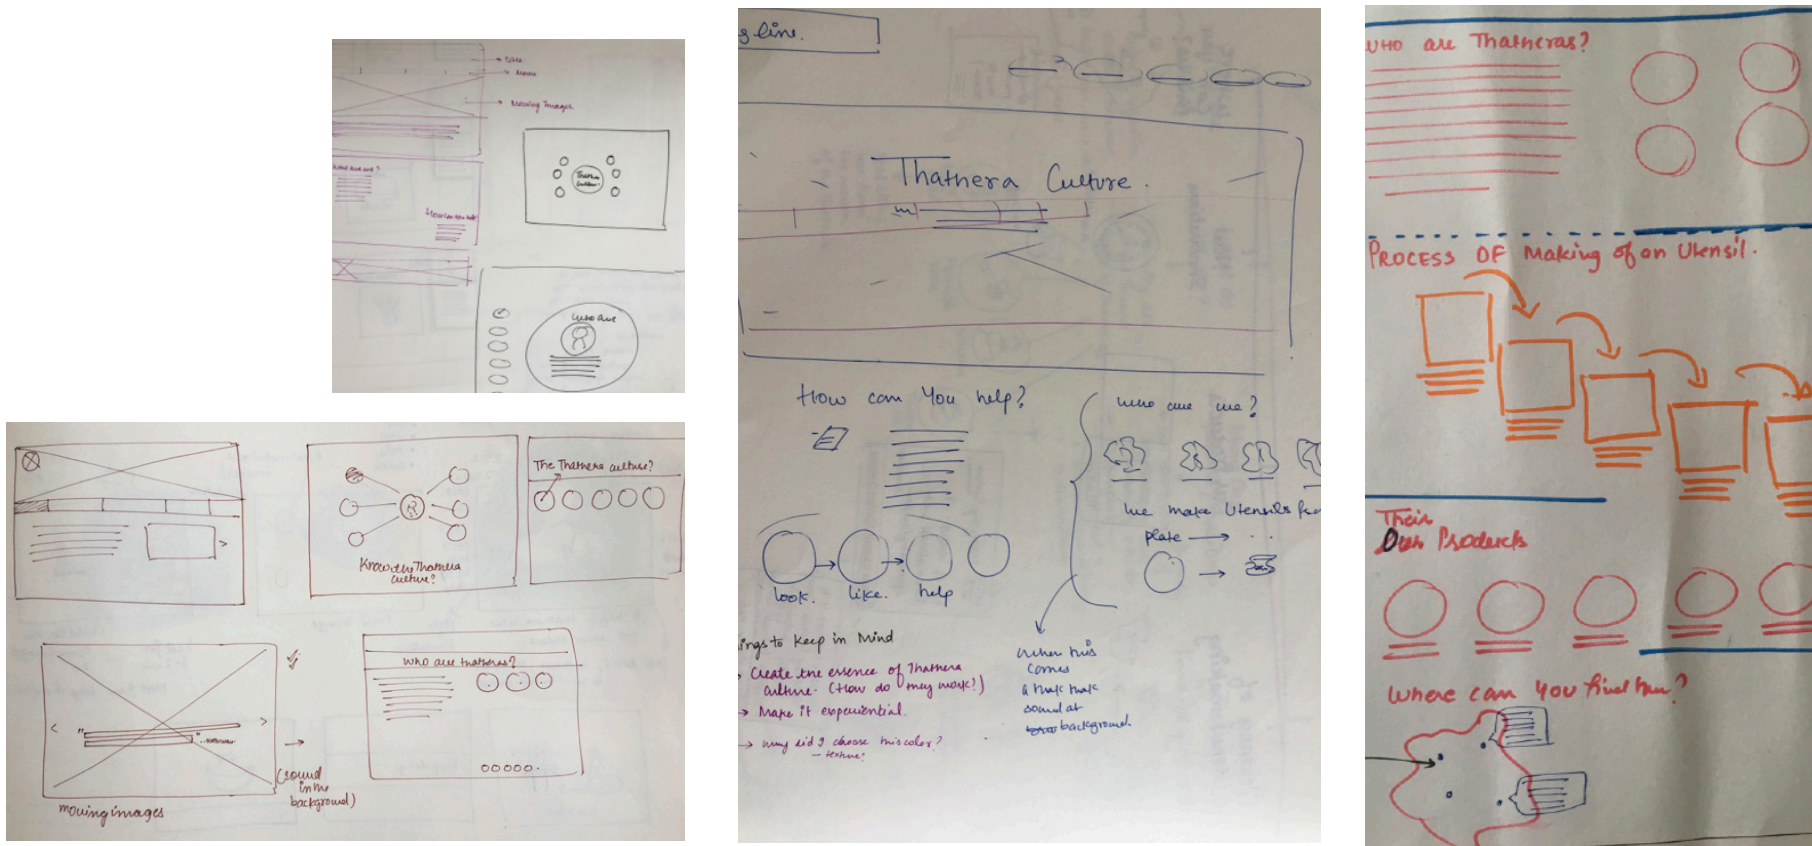 Title
Menu
Moving Images
What are we?
How can we help
Thathera
Culture
Who are
The Thathera culture?
Know the Thathera
culture?
Who are thatheras?
(sound
in the
background)
moving images
line.
Thathera Culture.
How can you help?
look.
like.
help
who are we?
We make Utensils
plate
ings to keep in Mind
Create the essence of Thathera
culture. (How do they work?)
Make it experiential.
Why did I choose this color?
- texture?
When this
comes
a thak thak
sound at
background.
WHO are Thatheras?
PROCESS OF Making of an Utensil.
Their
Our Products
Where can you find them?